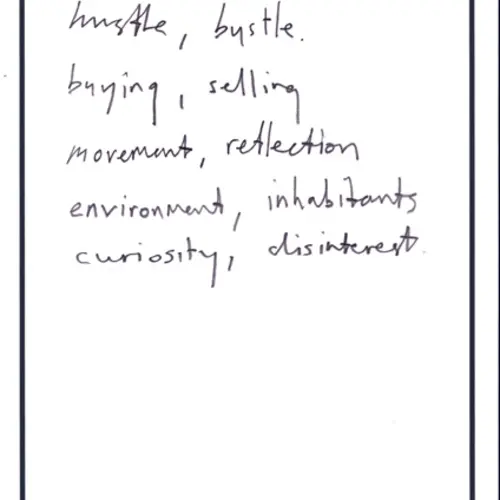 hustle, bystle.
buying, selling
movement, reflection
environment, inhabitants
curiosity, disinterest.